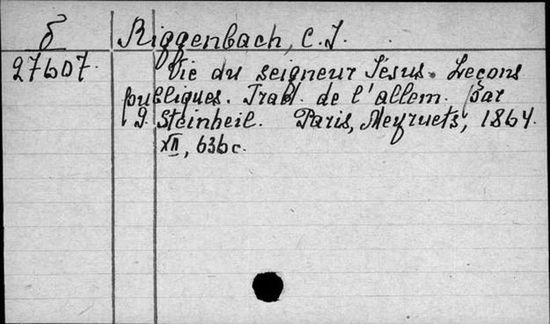 δ Riggenbach, C. J.
27607. Vie du seigneur Jésus. Leçons
publiques. Trad. de l'allem. par
G. Steinheil. Paris, Meyruets, 1864.
XII, 636 c.